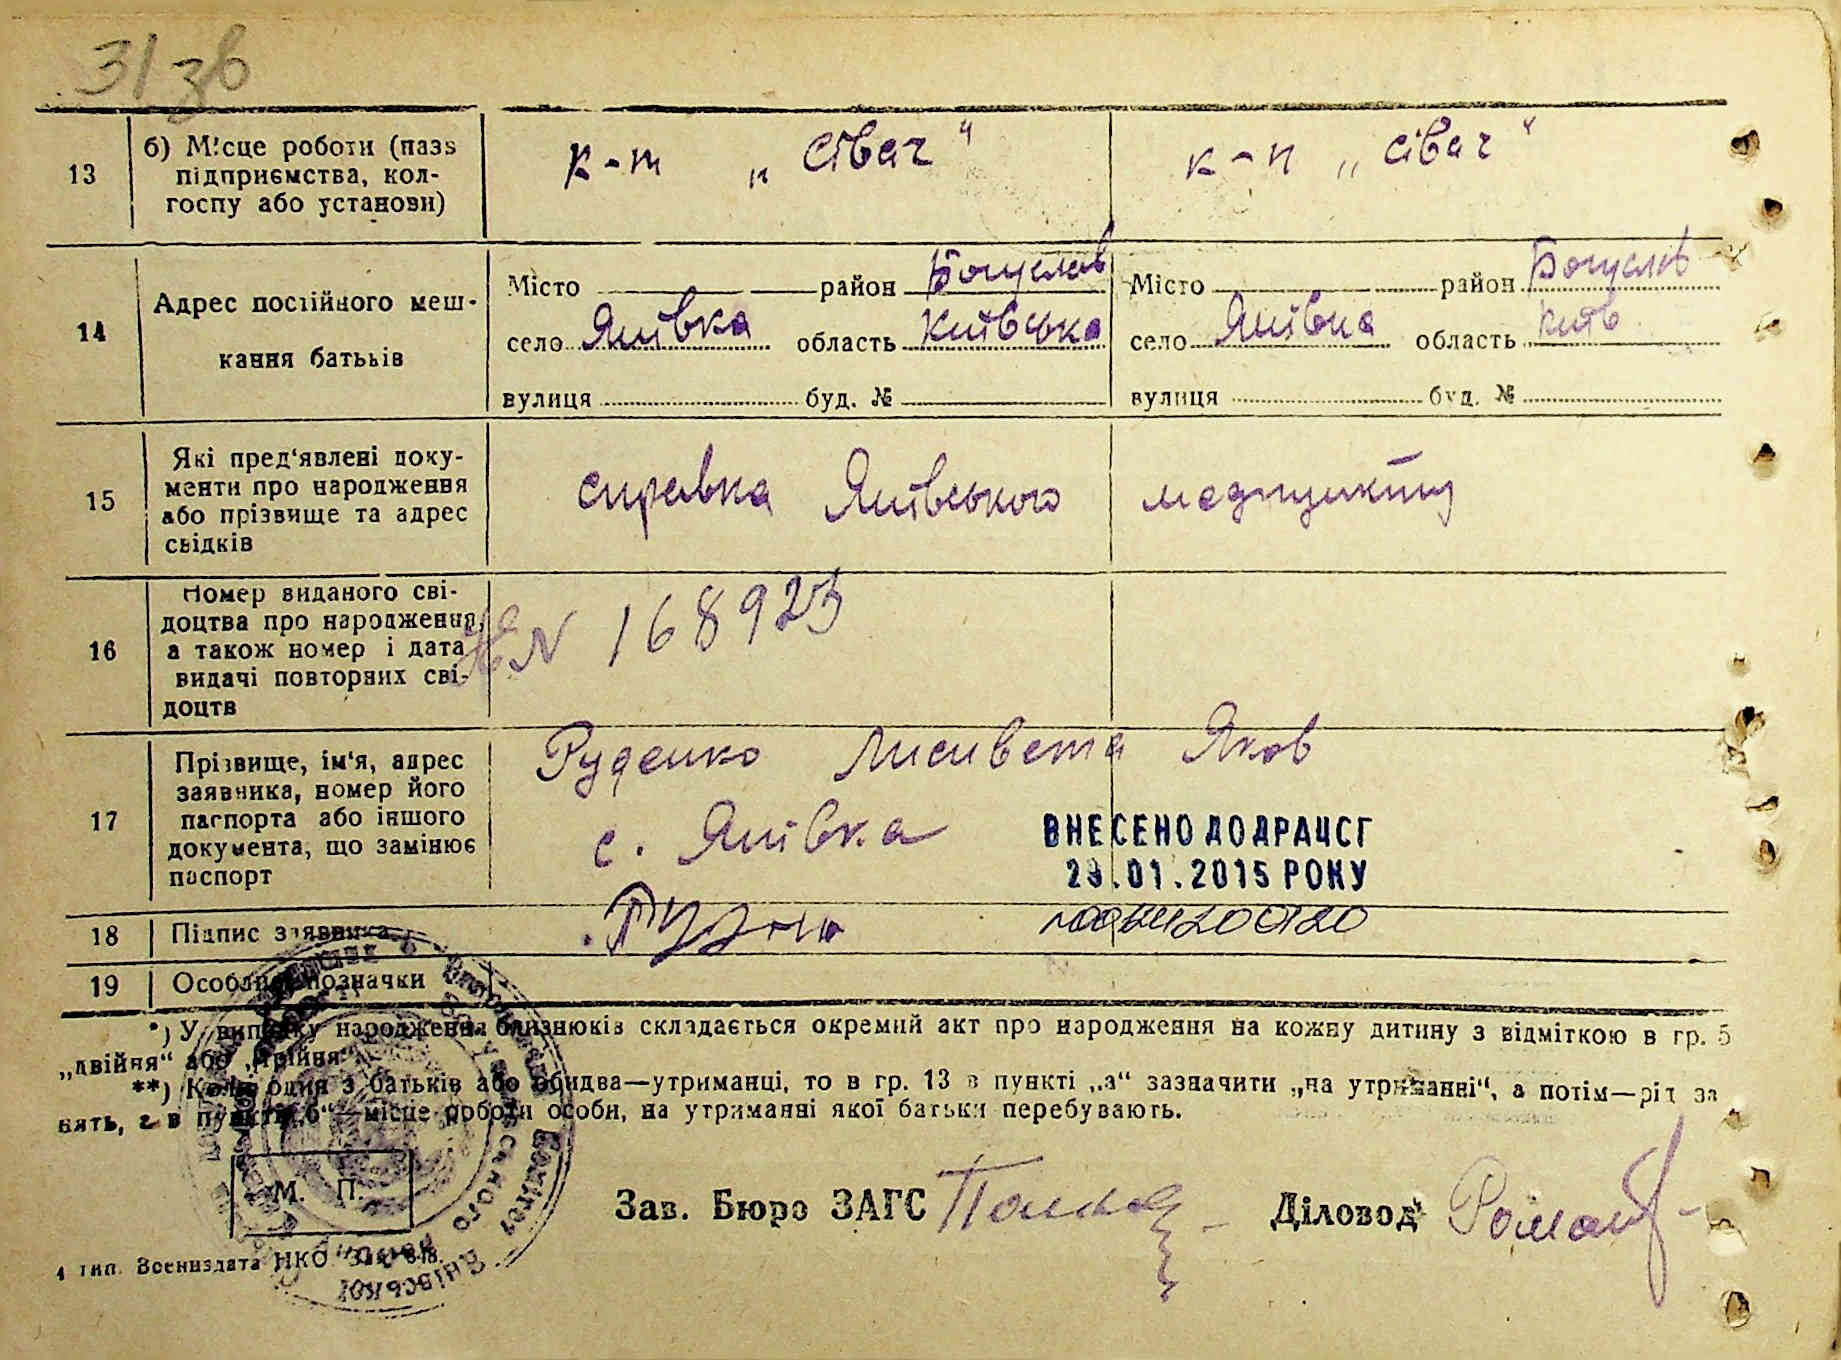 31 зв
13 б) Місце роботи (назв підприємства, колгоспу або установи) к-т „Сівач“ к-п „Сівач“
14 Адрес постійного мешкання батьків
Місто район Богуслав Місто район Богуслав
село Яхівка область Київська село Яхівка область Київ
вулиця буд. № вулиця буд. №
15 Які пред'явлені документи про народження або прізвище та адрес свідків справка Яхівського медпункту
16 Номер виданого свідоцтва про народження, а також номер і дата видачі повторних свідоцтв № 168923
17 Прізвище, ім'я, адрес заявника, номер його паспорта або іншого документа, що замінює паспорт Руденко Лисивета Яков
с. Яхівка
ВНЕСЕНО ДО ДРАЦСГ
29.01.2015 РОКУ
18 Підпис заявника
19 Особливі позначки
*) У випадку народження близнюків складається окремий акт про народження на кожну дитину з відміткою в гр. 5
„двійня“ або „трійня“.
**) Коли один з батьків або обидва—утриманці, то в гр. 13 в пункті „а“ зазначити „на утриманні“, а потім—рід за
нять, а в пункті „б“—місце роботи особи, на утриманні якої батьки перебувають.
М. П.
Зав. Бюро ЗАГС Діловод Роман
4 тип. Воениздата НКО Зак.